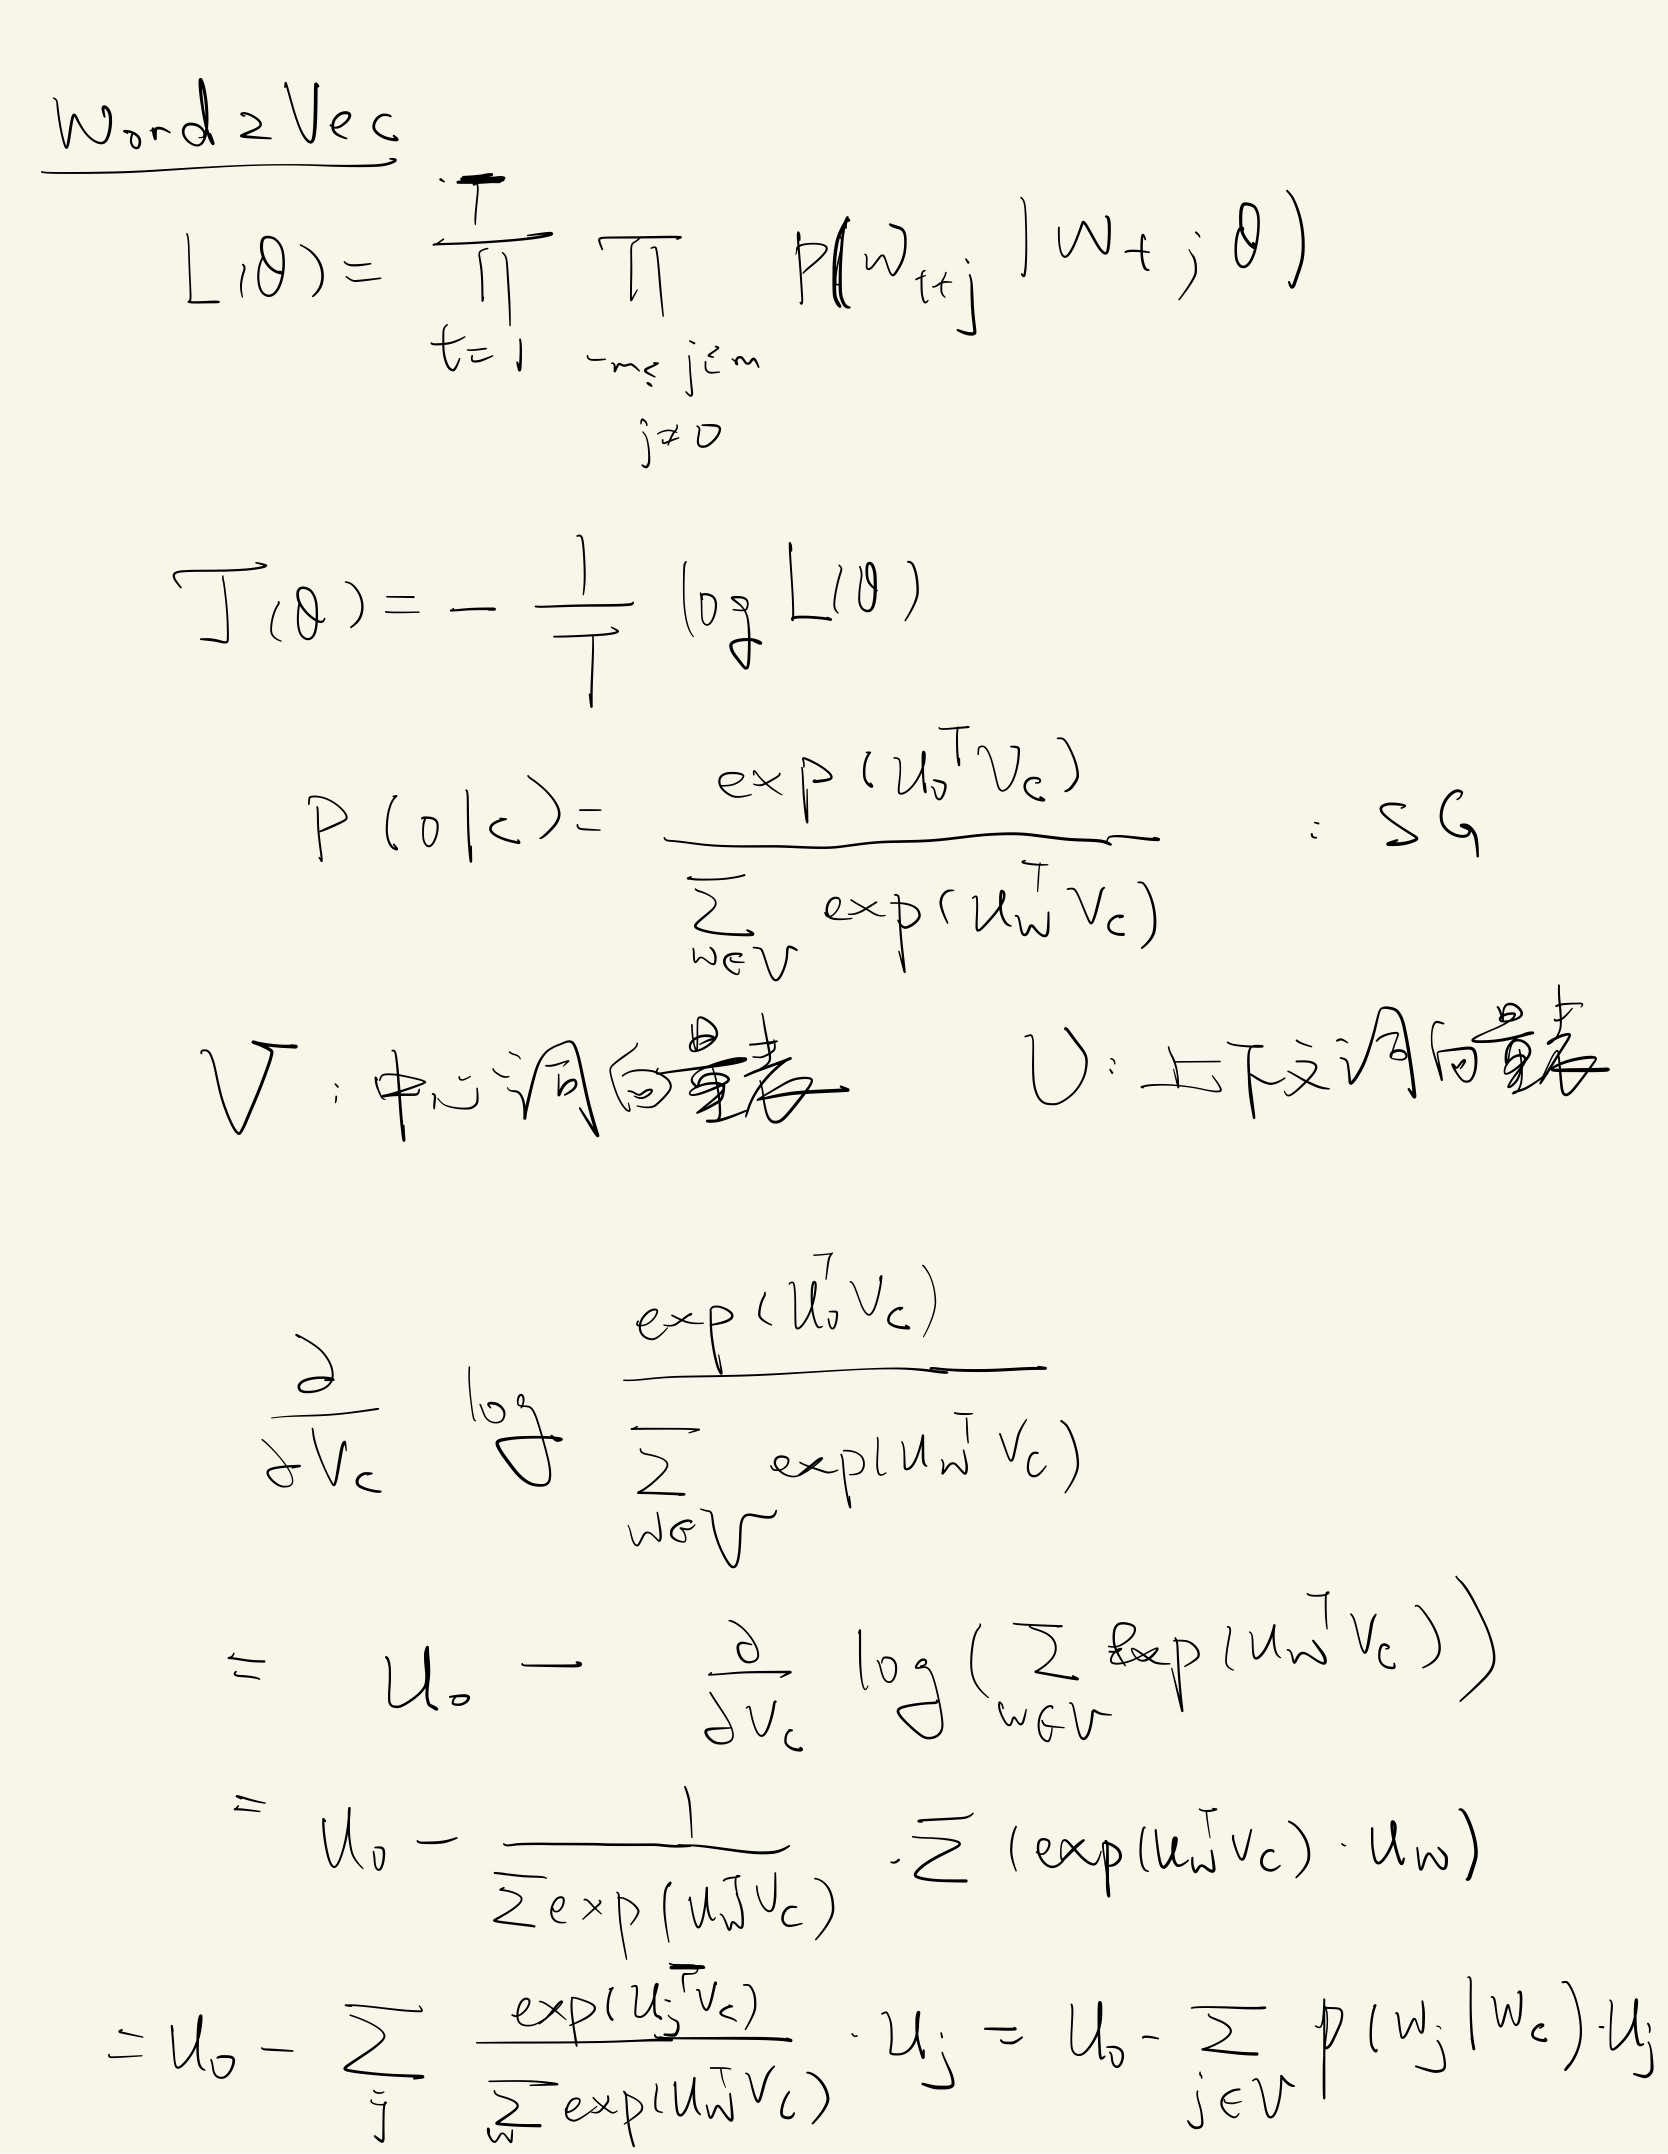 Word2Vec
L(θ) = ∏_{t=1}^{T} ∏_{-m≤j≤m, j≠0} P(w_{t+j} | w_t; θ)
J(θ) = - 1/T log L(θ)
P(o|c) = exp(u_o^T v_c) / ∑_{w∈V} exp(u_w^T v_c) : SG
V: 中心词向量表 U: 上下文词向量表
∂/∂v_c log exp(u_o^T v_c) / ∑_{w∈V} exp(u_w^T v_c)
= u_o - ∂/∂v_c log(∑_{w∈V} exp(u_w^T v_c))
= u_o - 1/∑exp(u_w^T v_c) · ∑(exp(u_w^T v_c) · u_w)
= u_o - ∑_j exp(u_j^T v_c) / ∑_w exp(u_w^T v_c) · u_j = u_o - ∑_{j∈V} P(w_j|w_c) · u_j